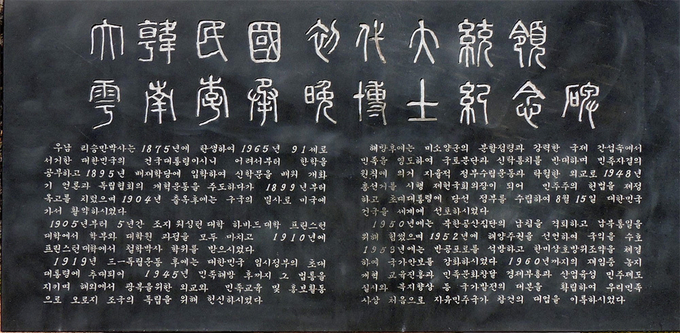 大韓民國初代大統領
雩南李承晩博士紀念碑
우남 리승만박사는 1875년에 탄생하여 1965년 91세로
서거한 대한민국의 건국대통령이시니 어려서부터 한학을
공부하고 1895년 배재학당에 입학하여 신학문을 배워 개화
기 언론과 독립협회의 개혁운동을 주도하다가 1899년부터
옥고를 치렀으며 1904년 출옥후에는 구국의 밀사로 미국에
가서 활약하시었다
1905년부터 5년간 조지 워싱턴 대학 하바드대학 프린스턴
대학에서 학부와 대학원 과정을 모두 마치고 1910년에
프린스턴대학에서 철학박사 학위를 받으시었다
1919년 三一독립운동 후에는 대한민국 임시정부의 초대
대통령에 추대되어 1945년 민족해방 후까지 그 법통을
지키며 해외에서 광복을위한 외교와 민족교육 및 홍보활동
으로 오로지 조국의 독립을 위해 헌신하시었다
해방후에는 미소양군의 분할점령과 강력한 국제 간섭속에서
민족을 영도하여 국토분단과 신탁통치를 반대하며 민족자결의
원칙에 의거 자율적 정부수립운동과 탁월한 외교로 1948년
총선거를 시행 제헌국회의장이 되어 민주주의 헌법을 제정
하고 초대대통령에 당선 정부를 수립하여 8월 15일 대한민국
건국을 세계에 선포하시었다
1950년에는 북한공산집단의 남침을 격퇴하고 납부통일을
위해 힘썼으며 1952년에 해양주권을 선언하여 국익을 수호
1953년에는 반공포로를 석방하고 한미상호방위조약을 체결
하여 국가안보를 강화하시었다 1960년까지의 재임중 농지
개혁 교육진흥과 민족문화창달 경제부흥과 산업육성 민주제도
실시와 복지향상 등 국가발전의 대본을 확립하여 우리민족
사상 처음으로 자유민주국가 창건의 대업을 이룩하시었다